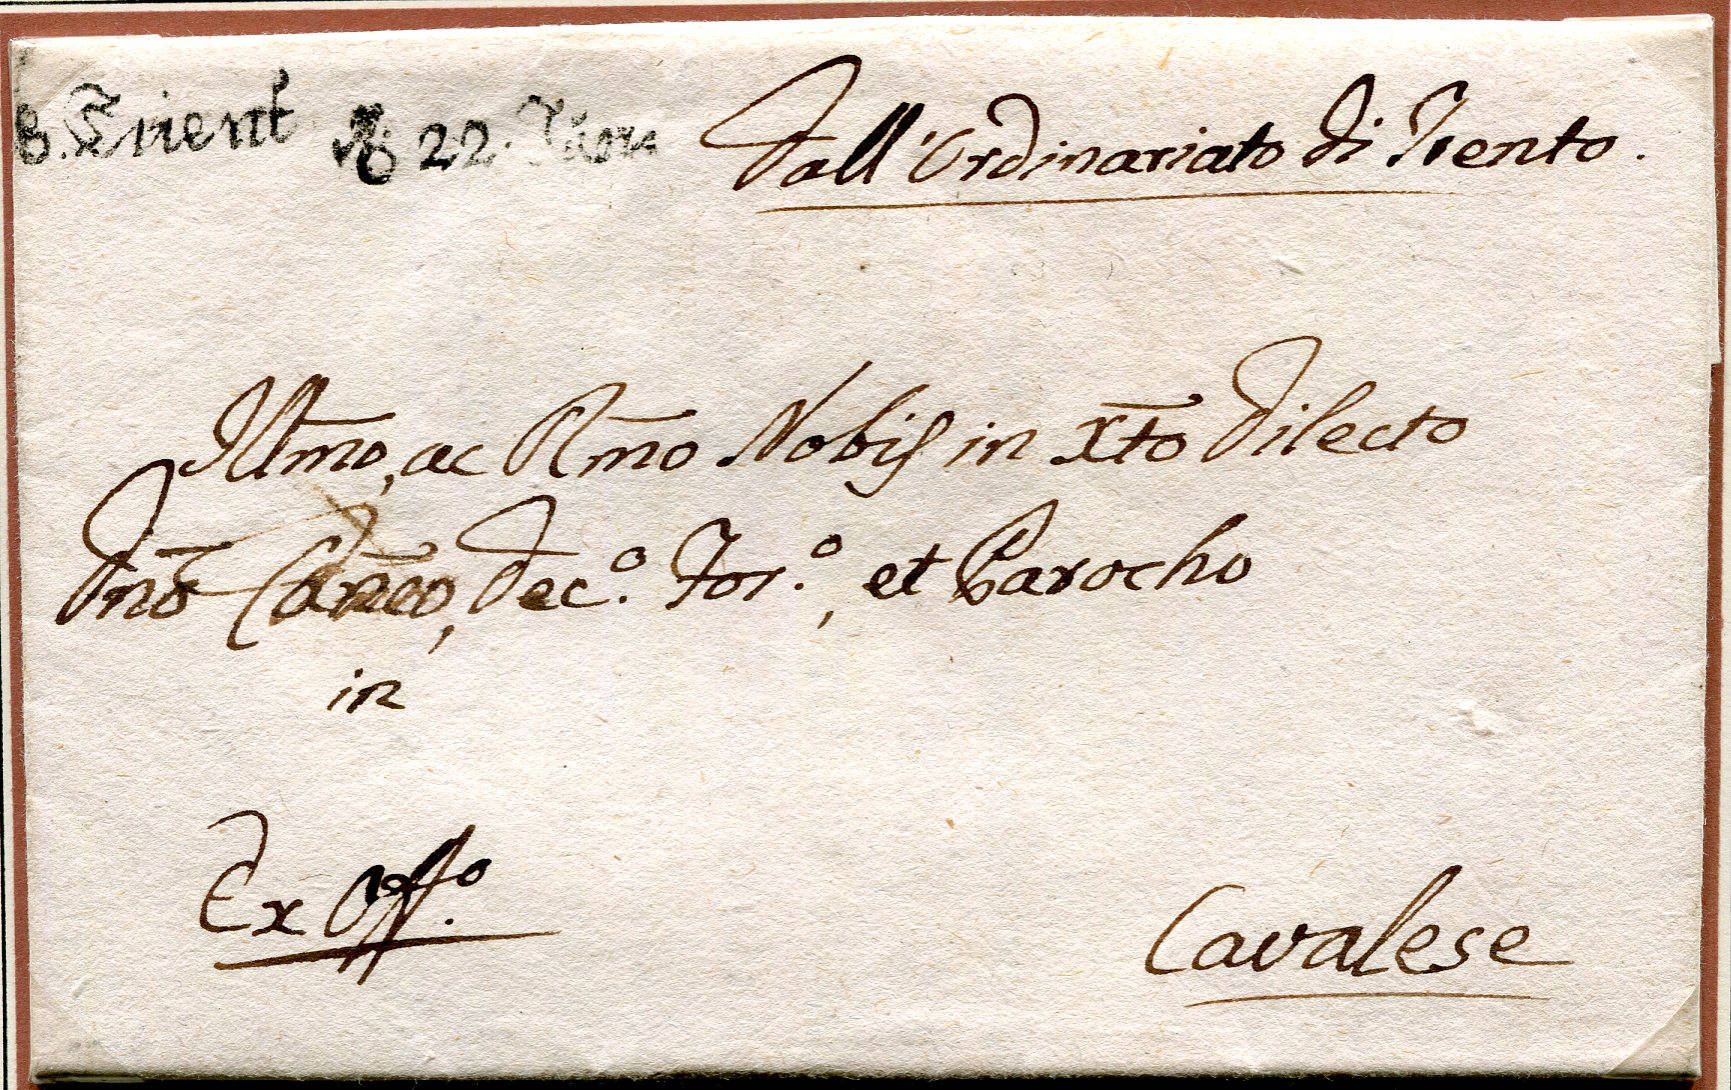 B. Trient 22.
Dall'Ordinariato di Trento.
Illm̄o, ac Rm̄o Nobis in Xt̄o Dilecto
Dn̄o Can̄co, Dec.º For.º, et Parocho
in
Ex Offº.
Cavalese